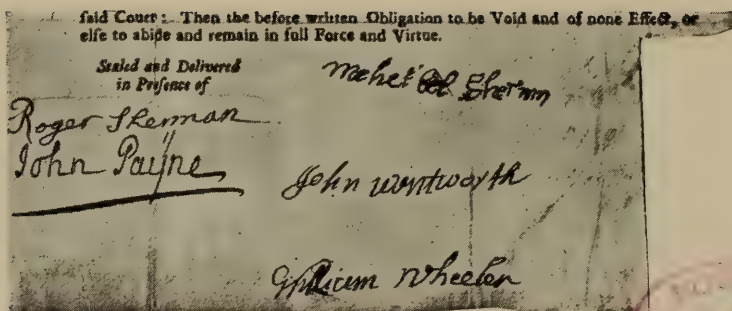 ſaid Court: Then the before written Obligation to be Void and of none Effect, or
elſe to abide and remain in full Force and Virtue.
Sealed and Delivered
in Preſence of
Mehetabel Sherman
Roger Sherman
John Payne
John Wentworth
William Wheeler